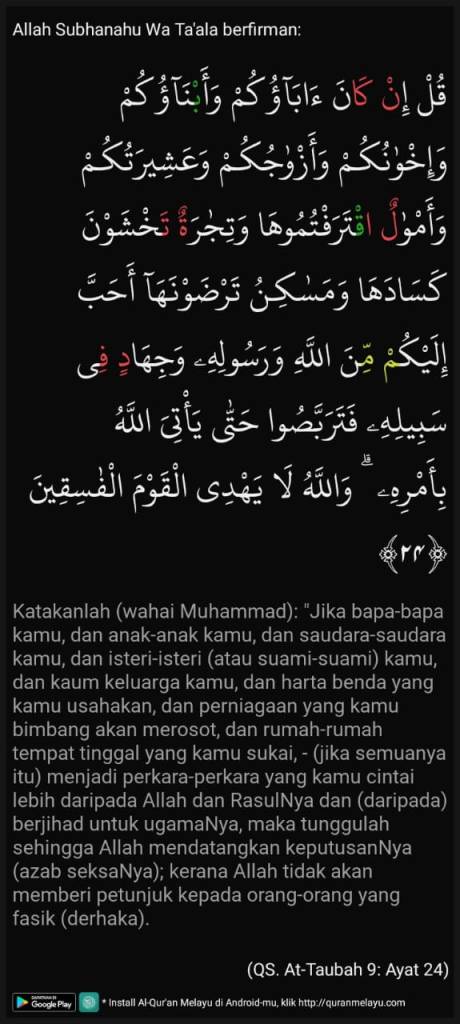 Allah Subhanahu Wa Ta'ala berfirman:
قُلْ إِنْ كَانَ ءَابَآؤُكُمْ وَأَبْنَآؤُكُمْ
وَإِخْوٰنُكُمْ وَأَزْوٰجُكُمْ وَعَشِيرَتُكُمْ
وَأَمْوٰلٌ اقْتَرَفْتُمُوهَا وَتِجٰرَةٌ تَخْشَوْنَ
كَسَادَهَا وَمَسٰكِنُ تَرْضَوْنَهَآ أَحَبَّ
إِلَيْكُمْ مِّنَ اللَّهِ وَرَسُولِهِۦ وَجِهَادٍ فِى
سَبِيلِهِۦ فَتَرَبَّصُوا حَتّٰى يَأْتِىَ اللَّهُ
بِأَمْرِهِۦ ۗ وَاللَّهُ لَا يَهْدِى الْقَوْمَ الْفٰسِقِينَ
﴿٢٤﴾
Katakanlah (wahai Muhammad): "Jika bapa-bapa
kamu, dan anak-anak kamu, dan saudara-saudara
kamu, dan isteri-isteri (atau suami-suami) kamu,
dan kaum keluarga kamu, dan harta benda yang
kamu usahakan, dan perniagaan yang kamu
bimbang akan merosot, dan rumah-rumah
tempat tinggal yang kamu sukai, - (jika semuanya
itu) menjadi perkara-perkara yang kamu cintai
lebih daripada Allah dan RasulNya dan (daripada)
berjihad untuk ugamaNya, maka tunggulah
sehingga Allah mendatangkan keputusanNya
(azab seksaNya); kerana Allah tidak akan
memberi petunjuk kepada orang-orang yang
fasik (derhaka).
(QS. At-Taubah 9: Ayat 24)
Google Play * Install Al-Qur'an Melayu di Android-mu, klik http://quranmelayu.com